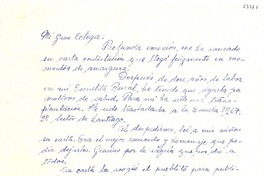 Mi Gran Colega:
Profunda emoción, me ha causado
su carta contestación que llegó justamente en mo-
mentos de amargura.
Después de dos años de labor
en mi Escuelita Rural, he tenido que dejarla por
motivos de salud. Para mí ha sido una
trans-
plantación. He sido trasladada a la Escuela Nº 64
de Santiago.
Al despedirme, leí a mis niños
su carta. Era el mejor recuerdo y homenaje que po-
día dejarles. Gracias por la alegría que nos dió a
todos.
Su carta la acogió el pueblito para